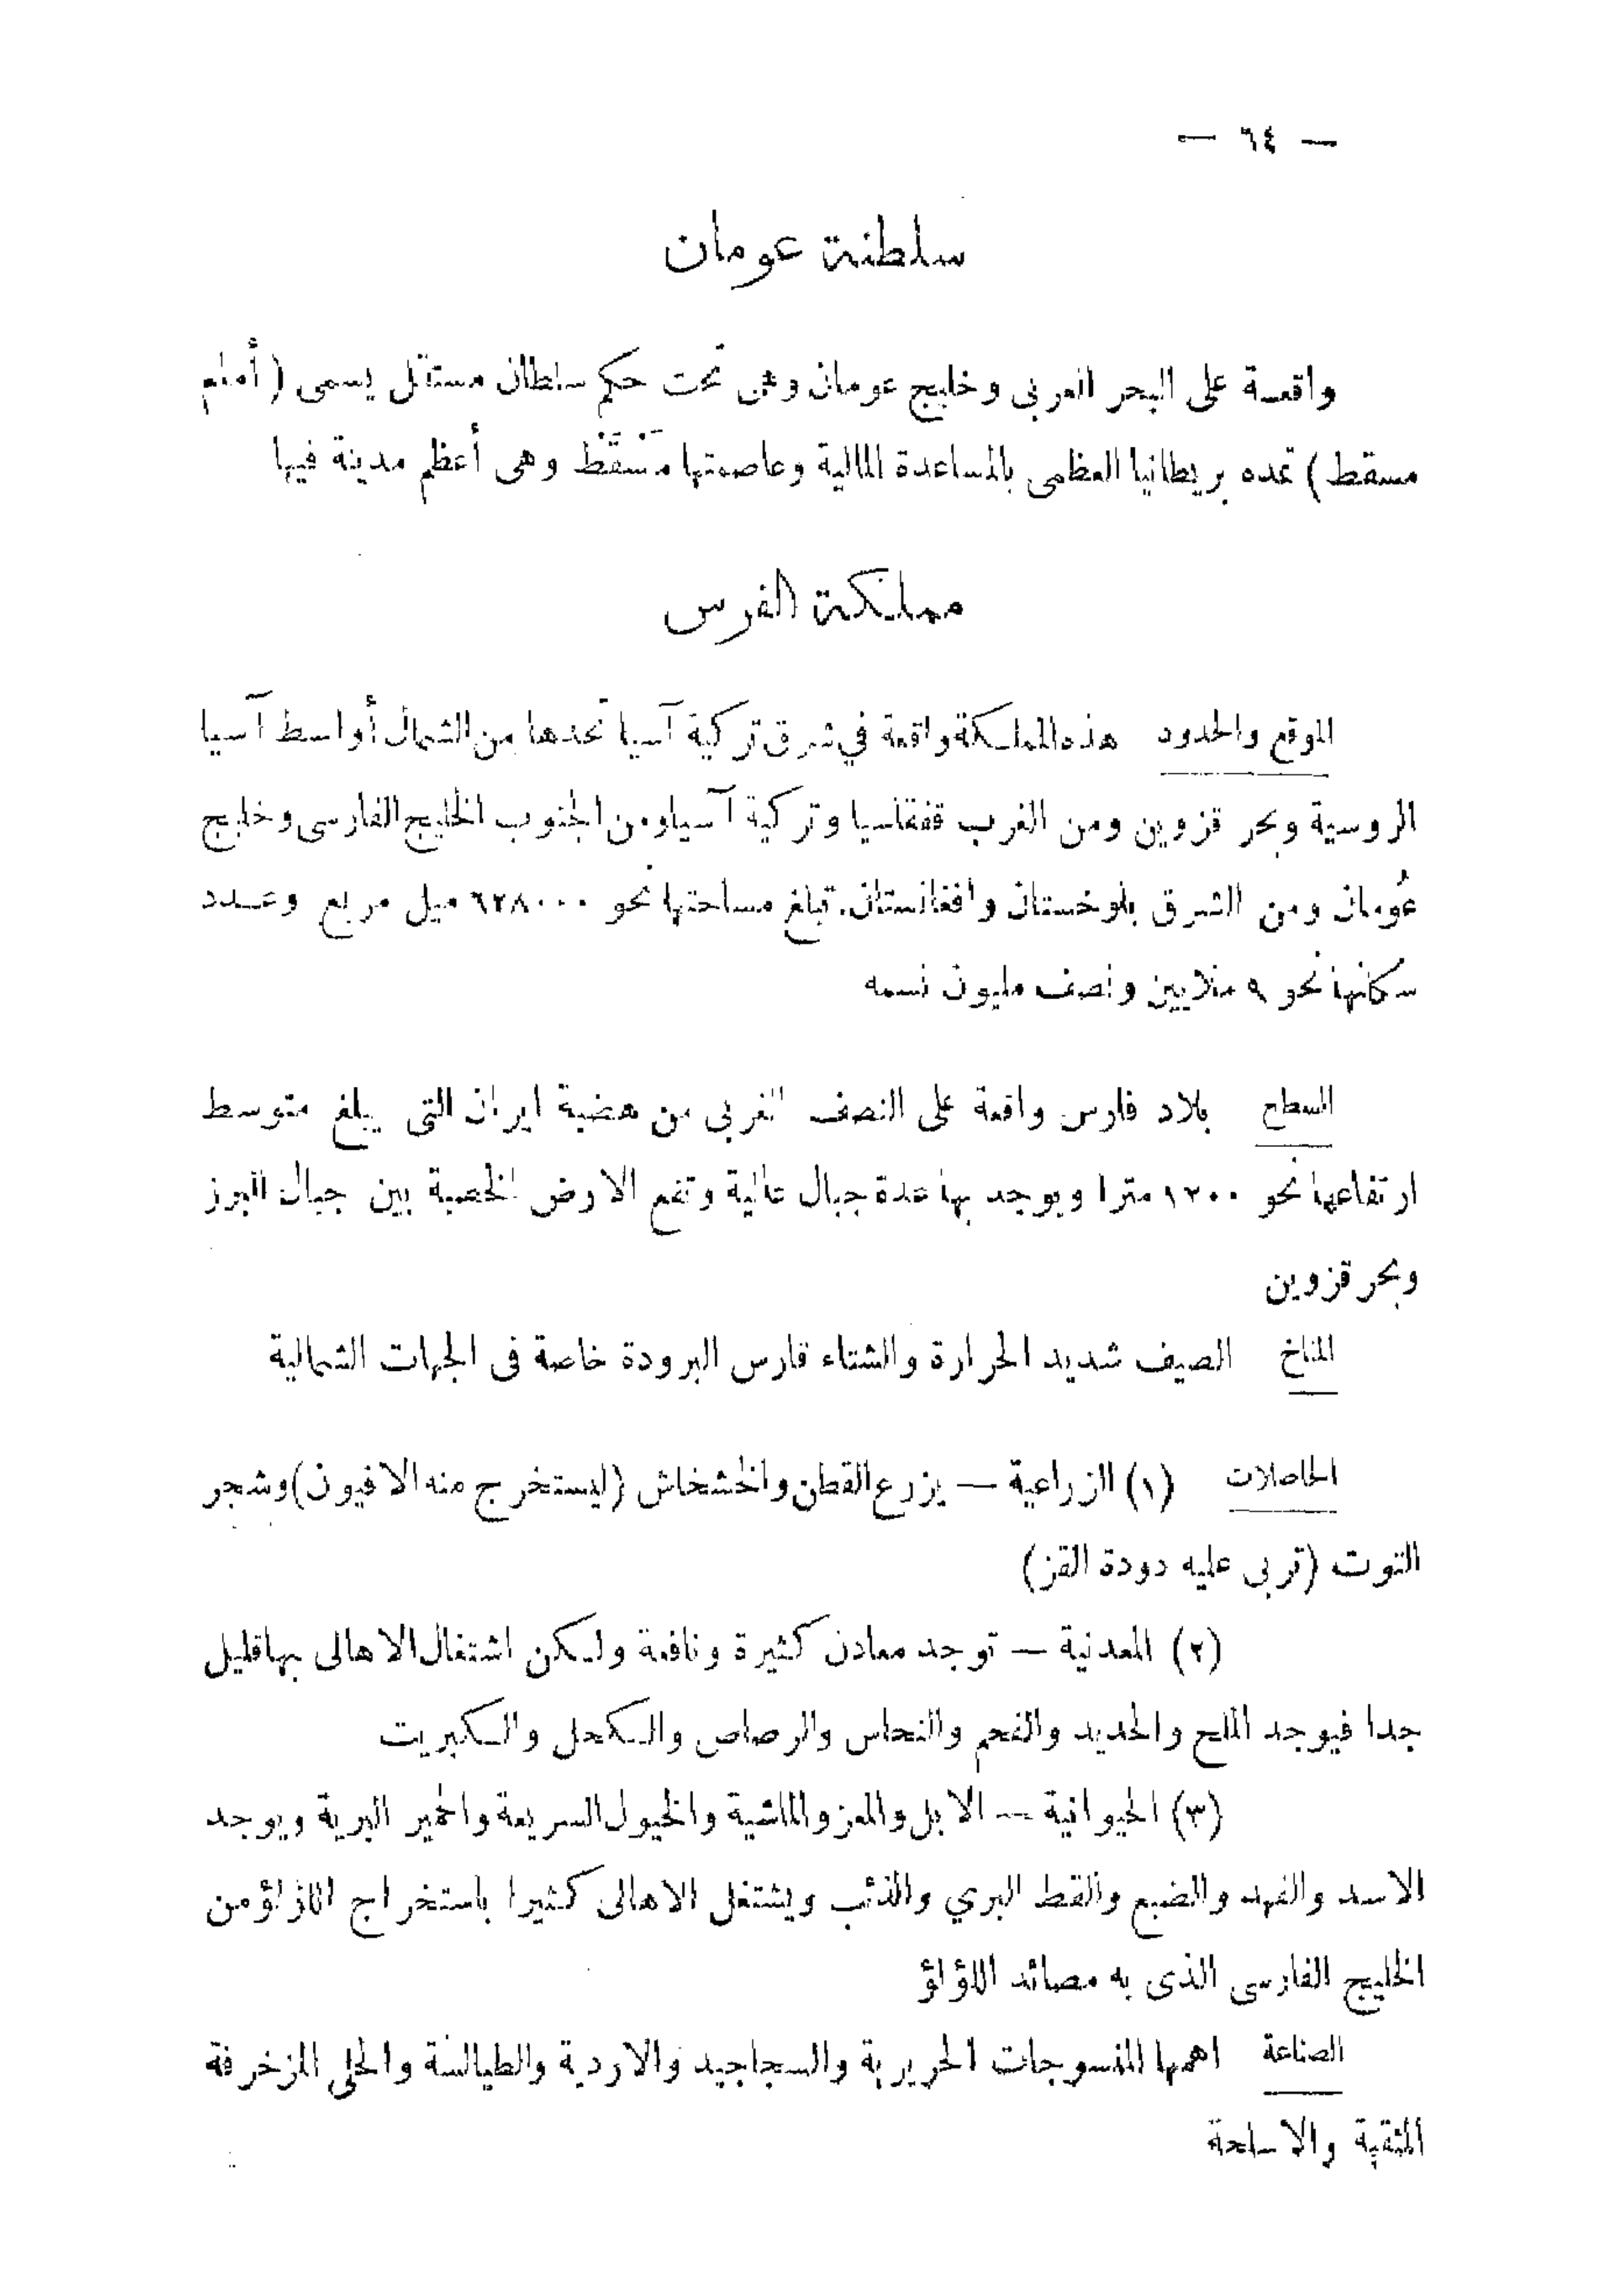 — ٦٤ —
سلطنة عومان
واقعة على البحر العربى وخليج عومان وهى تحت حكم سلطان مستقل يسمى ( أمام
مسقط ) تمده بريطانيا العظمى بالمساعدة المالية وعاصمتها مَسْقَطْ وهى أعظم مدينة فيها
مملكة الفرس
الموقع والحدود هذه المملكة واقعة في شرق تركية آسيا تحدها من الشمال أواسط آسيا
الروسية وبحر قزوين ومن الغرب قفقاسيا وتركية آسيا ومن الجنوب الخليج الفارسى وخليج
عُومان ومن الشرق بلوخستان وافغانستان. تبلغ مساحتها نحو ٦٢٨٠٠٠ ميل مربع وعدد
سكانها نحو ٩ ملايين ونصف مليون نسمه
السطح بلاد فارس واقعة على النصف الغربى من هضبة ايران التى يبلغ متوسط
ارتفاعها نحو ١٢٠٠ مترا ويوجد بها عدة جبال عالية وتقع الارض الخصبة بين جبال البرز
وبحر قزوين
المناخ الصيف شديد الحرارة والشتاء قارس البرودة خاصة فى الجهات الشمالية
الحاصلات (١) الزراعية — يزرع القطن والخشخاش (ليستخرج منه الافيون) وشجر
التوت (تربى عليه دودة القز)
(٢) المعدنية — توجد معادن كثيرة ونافعة ولكن اشتغال الاهالى بها قليل
جدا فيوجد الملح والحديد والفحم والنحاس والرصاص والكحل والكبريت
(٣) الحيوانية — الابل والمعز والماشية والخيول السريعة والحمير البرية ويوجد
الاسد والفهد والضبع والقط البري والذئب ويشتغل الاهالى كثيرا باستخراج اللؤلؤ من
الخليج الفارسى الذى به مصائد اللؤلؤ
الصناعة اهمها المنسوجات الحريرية والسجاجيد والاردية والطيالسة والحلى المزخرفة
والاسلحة